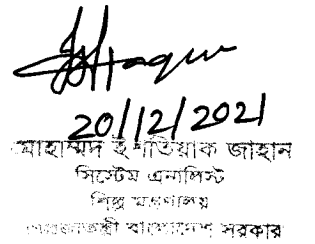 20/12/2021
মোহাম্মদ ইশতিয়াক জাহান
সিস্টেম এনালিস্ট
শিল্প মন্ত্রণালয়
গণপ্রজাতন্ত্রী বাংলাদেশ সরকার